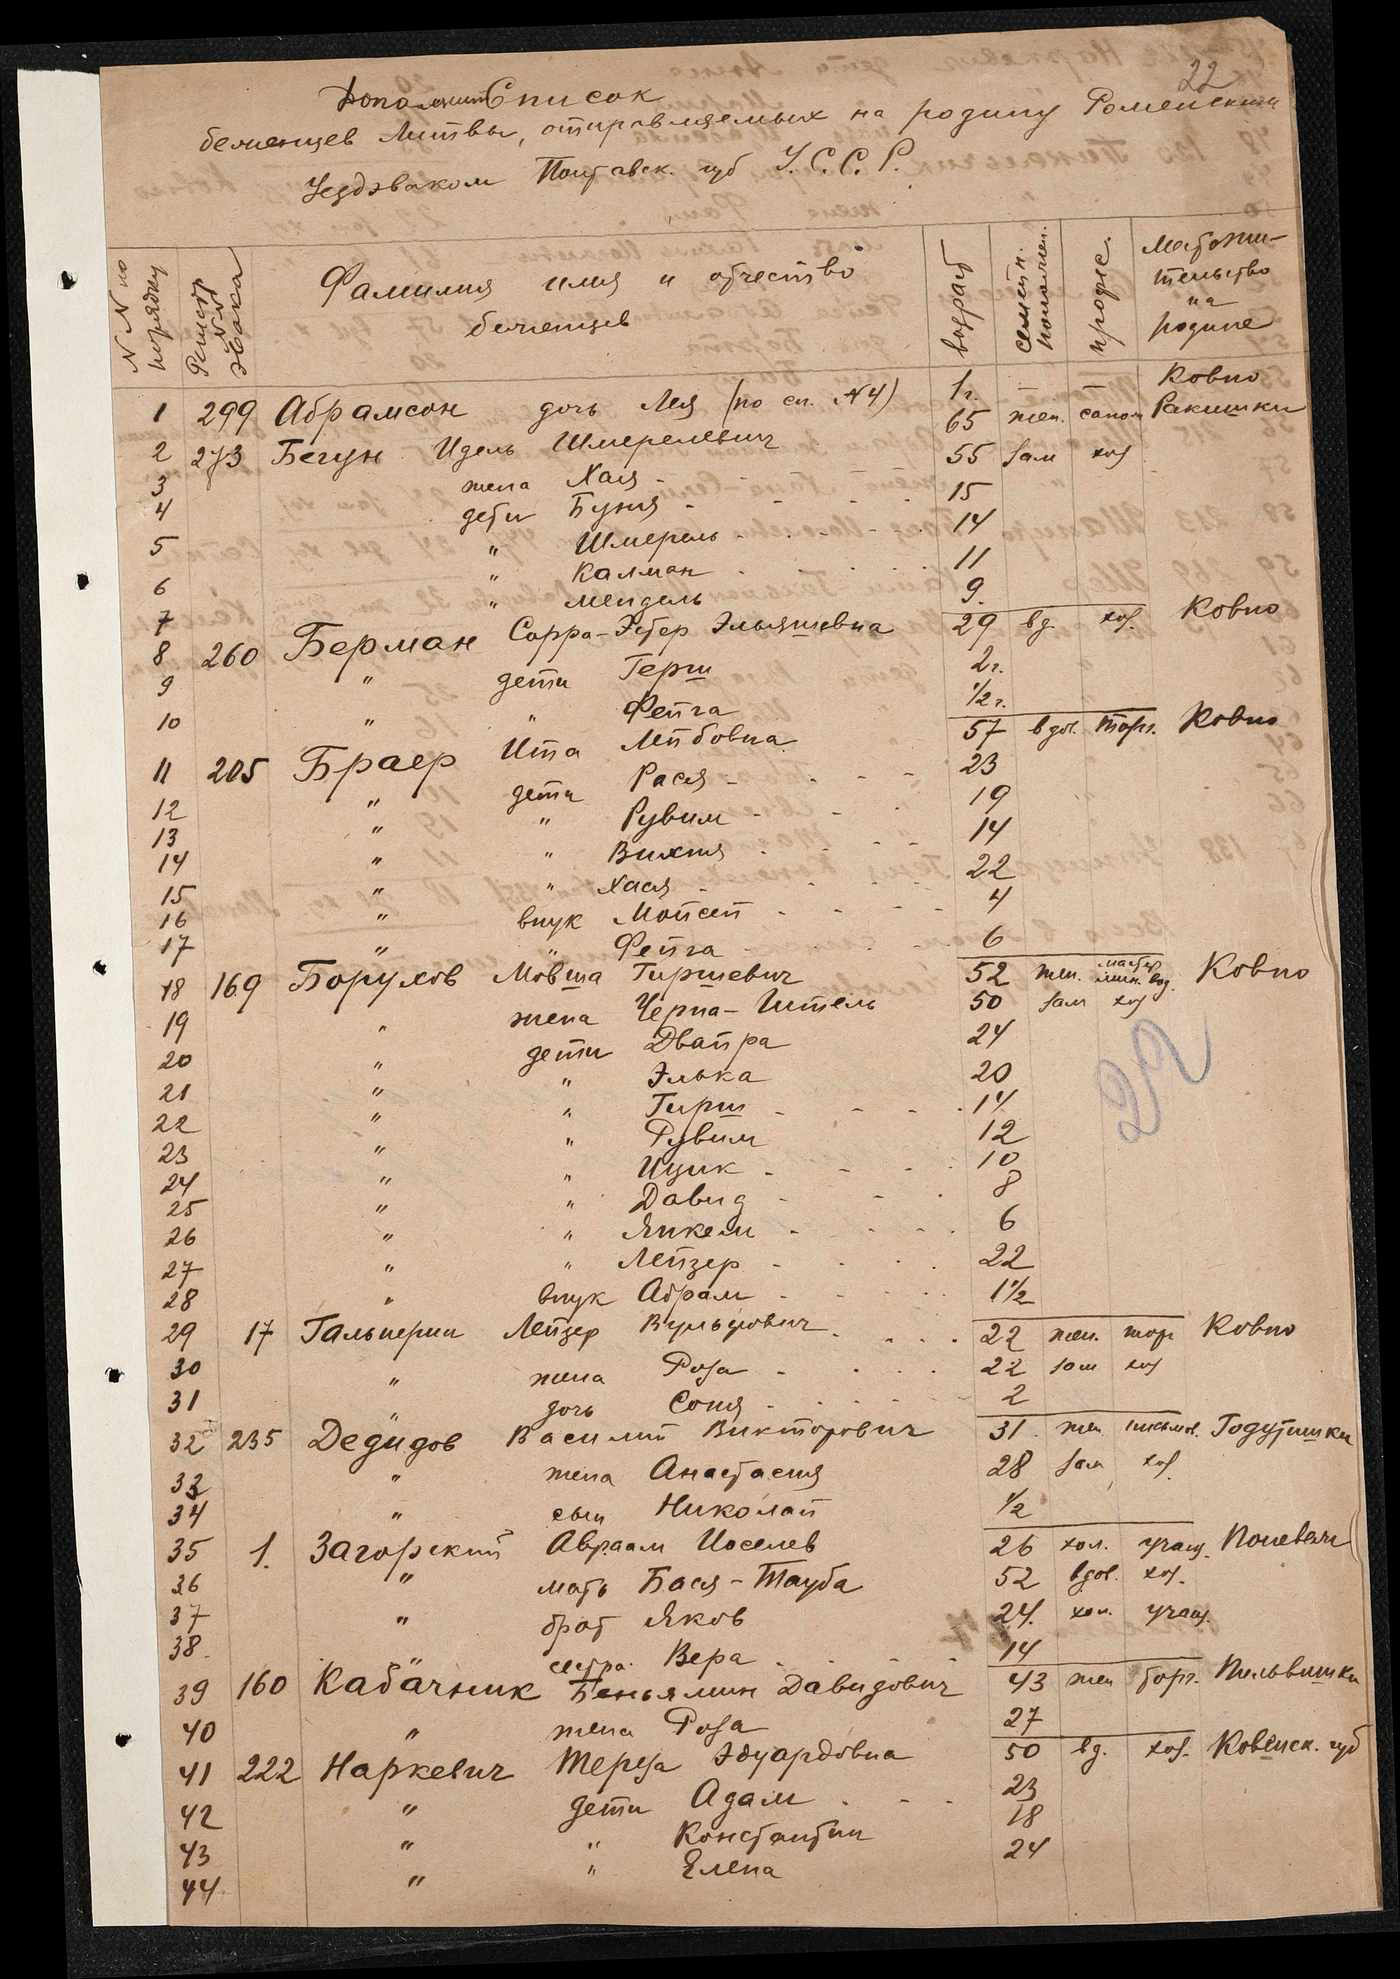 22
Дополнит Список
беженцев Литвы, отправляемых на родину Роменским
Уездэваком Полтавск. губ У.С.С.Р.
N N по порядку | Регистр N N эвака | Фамилия имя и отчество беженцев | возраст | семейн. положен. | профес. | Местожительство на родине
1 299 Абрамсон дочь Лея (по сп. N4) 1г. — — Ковно
2 273 Бегун Идель Шмерелевич 65 жен. сапож Ракишки
3 жена Хая 55 зам хоз
4 дети Буня 15
5 " Шмерель 14
6 " Калман 11
7 " Мендель 9.
8 260 Берман Сорра-Эстер Эльяшевна 29 вд. хоз. Ковно
9 " дети Герш 2г.
10 " " Фейга 1/2 г.
11 205 Браер Ита Лейбовна 57 вдов. торг. Ковно
12 " дети Рася 23
13 " " Рувим 19
14 " " Вихня 14
15 " " Хася 22
16 " внук Мойсей 4
17 " " Фейга 6
18 169 Борухов Мовша Гиршевич 52 жен. мастер мин. вод. Ковно
19 " жена Черна-Итель 50 зам хоз
20 " дети Двайра 24
21 " " Элька 20
22 " " Гирш 14
23 " " Рувим 12
24 " " Ицик 10
25 " " Давид 8
26 " " Янкель 6
27 " " Лейзер 22
28 " внук Абрам 1 1/2
22
29 17 Гальперин Лейзер Вульфович 22 жен. торг Ковно
30 " жена Роза 22 зам хоз
31 " дочь Соня 2
32 235 Дедидов Василий Викторович 31. жен письмов. Годутишки
33 " жена Анастасия 28 зам хоз.
34 " сын Николай 1/2
35 1. Загорский Авраам Иоселев 26 хол. учащ. Поневеж
36 " мать Бася-Тауба 52 вдов. хоз.
37 " брат Яков 24. хол. учащ.
38. сестра Вера 14
39 160 Кабачник Беньямин Давидович 43 жен торг. Пильвишки
40 " жена Роза 27
41 222 Наркевич Тереза Эдуардовна 50 вд. хоз. Ковенск. губ
42 " дети Адам 23
43 " " Константин 18
44 " " Елена 24